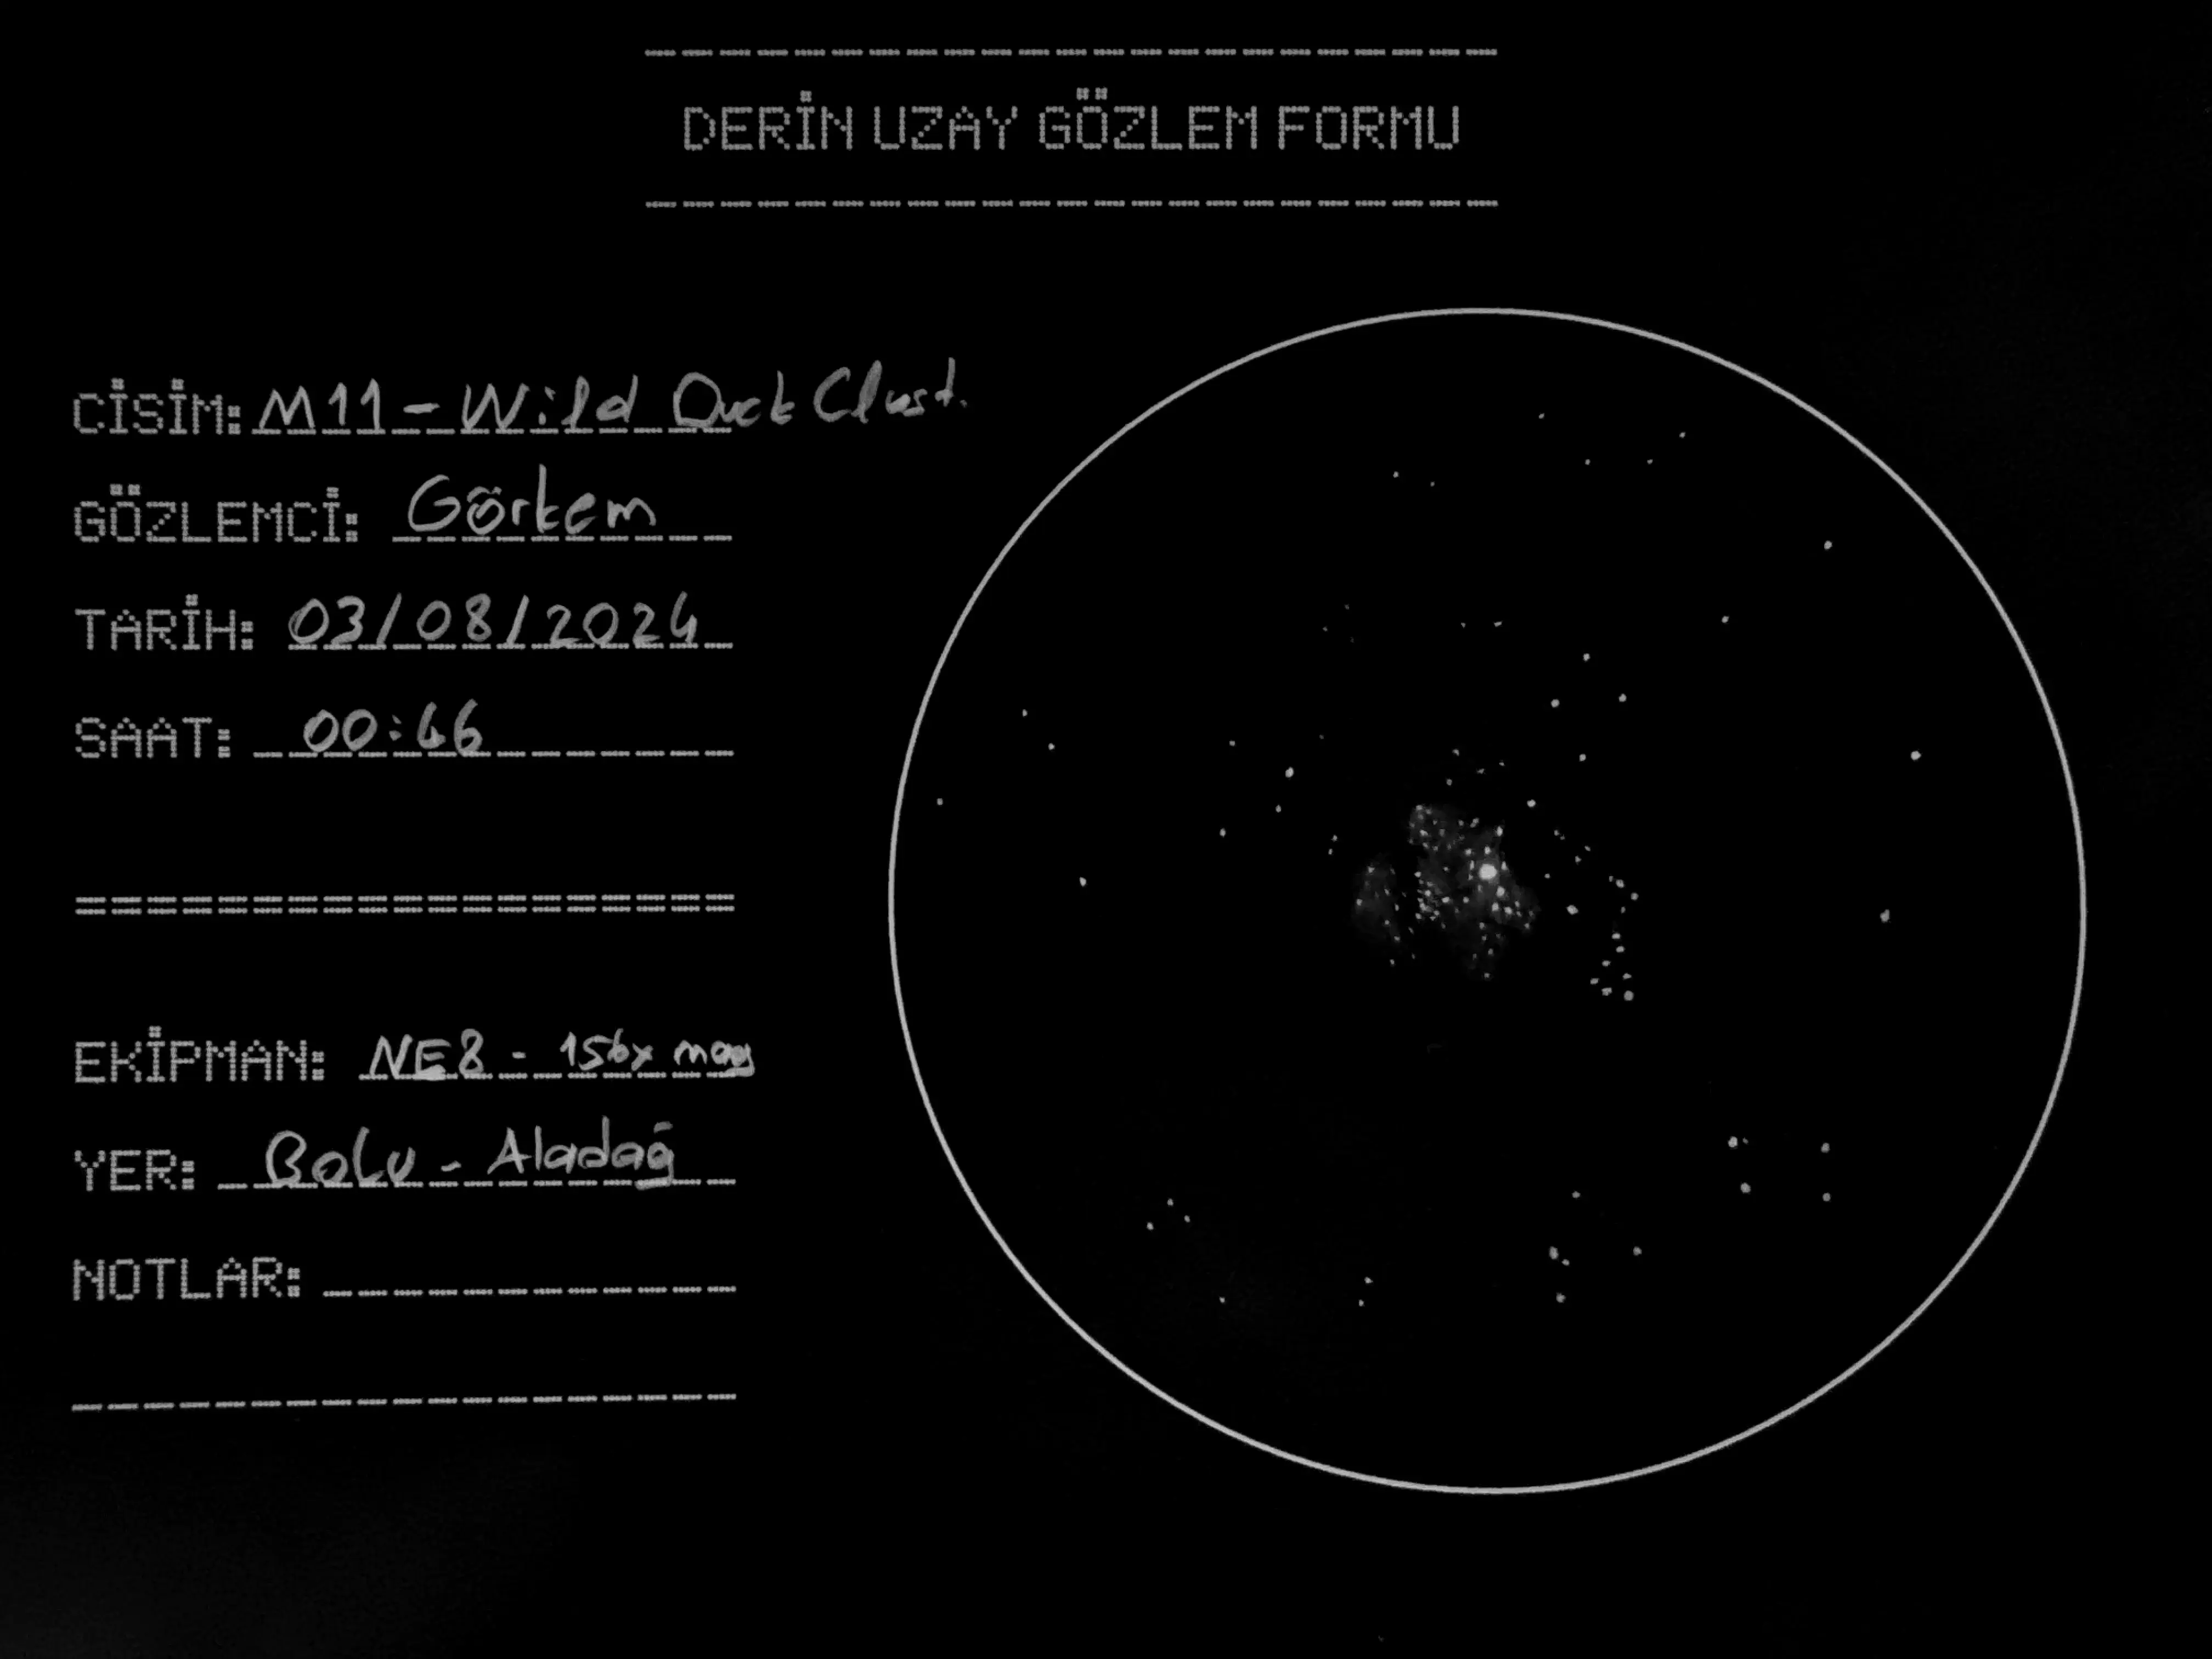 DERİN UZAY GÖZLEM FORMU
CİSİM: M11 - Wild Duck Clust.
GÖZLEMCİ: Görkem
TARİH: 03/08/2024
SAAT: 00:46
EKİPMAN: NE8 - 156x mag
YER: Bolu - Aladağ
NOTLAR: